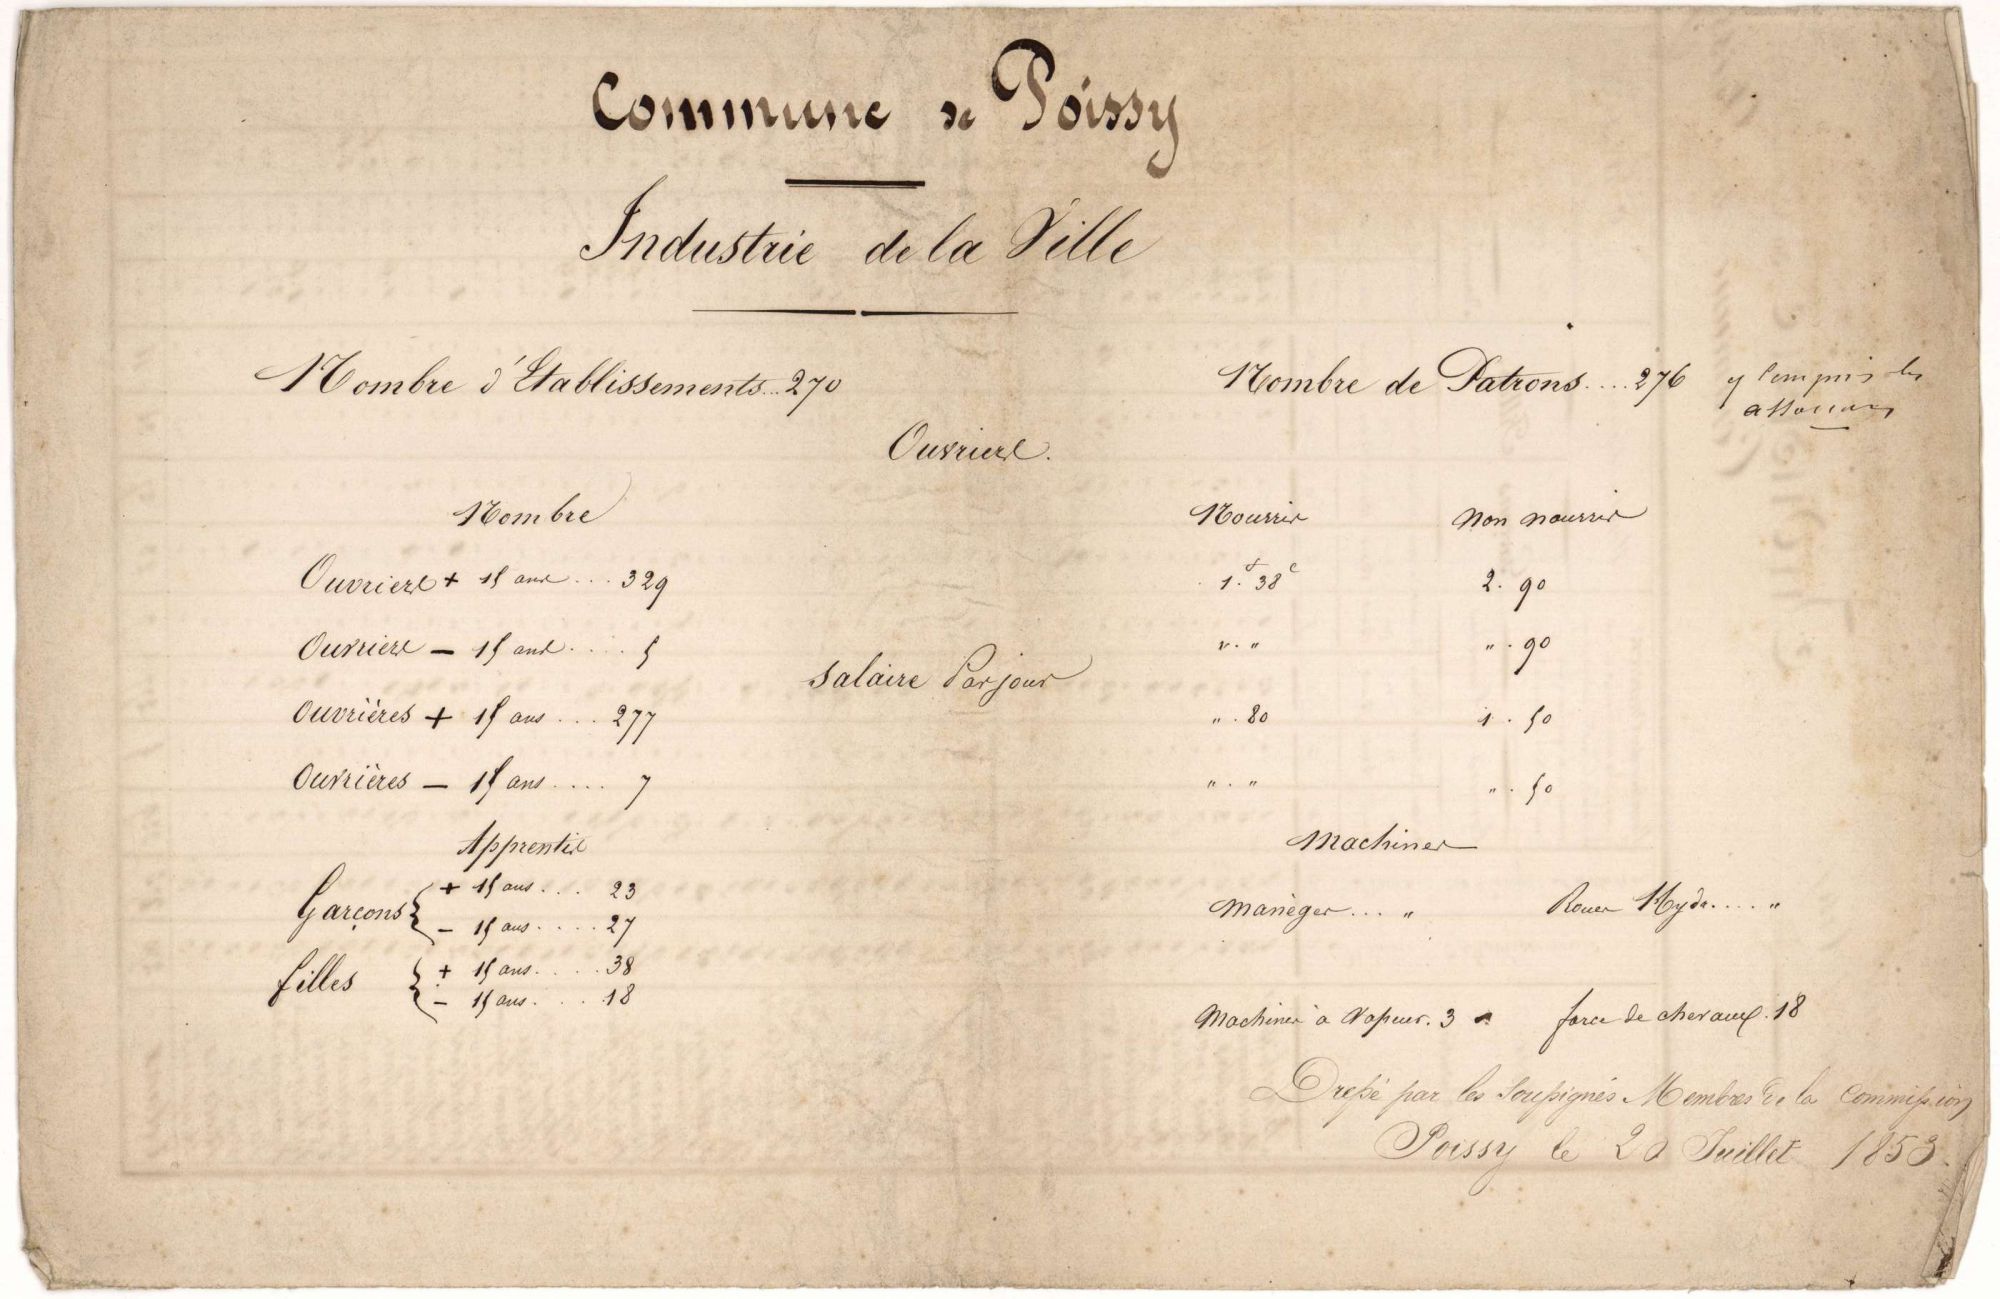 Commune de Poissy
Industrie de la Ville
Nombre d'Etablissements... 270
Nombre de Patrons.... 276 y compris les
associés
Ouvriers.
Nombre
Nourris Non nourris
Ouvriers + 15 ans ... 329 1.f 38c 2. 90
Ouvriers — 15 ans ..... 5 ". " ". 90
Salaire Par jour
Ouvrières + 15 ans ... 277 ". 80 1. 50
Ouvrières — 15 ans .... 7 ". " ". 50
Apprentis
Machines
Garçons { + 15 ans.... 23
— 15 ans..... 27
Manèges... " Roues Hydr..... "
filles { + 15 ans..... 38
— 15 ans..... 18
Machines à Vapeur. 3 force de chevaux. 18
Dressé par les Soussignés Membres de la Commission
Poissy le 20 Juillet 1853.